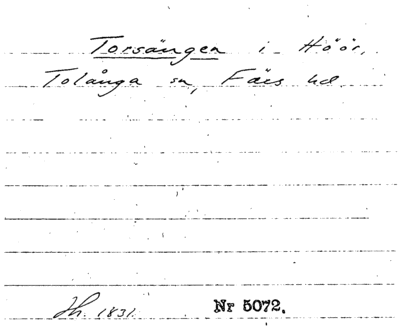 Torsängen i Höör,
Tolånga sn, Färs hd
1831. Nr 5072.